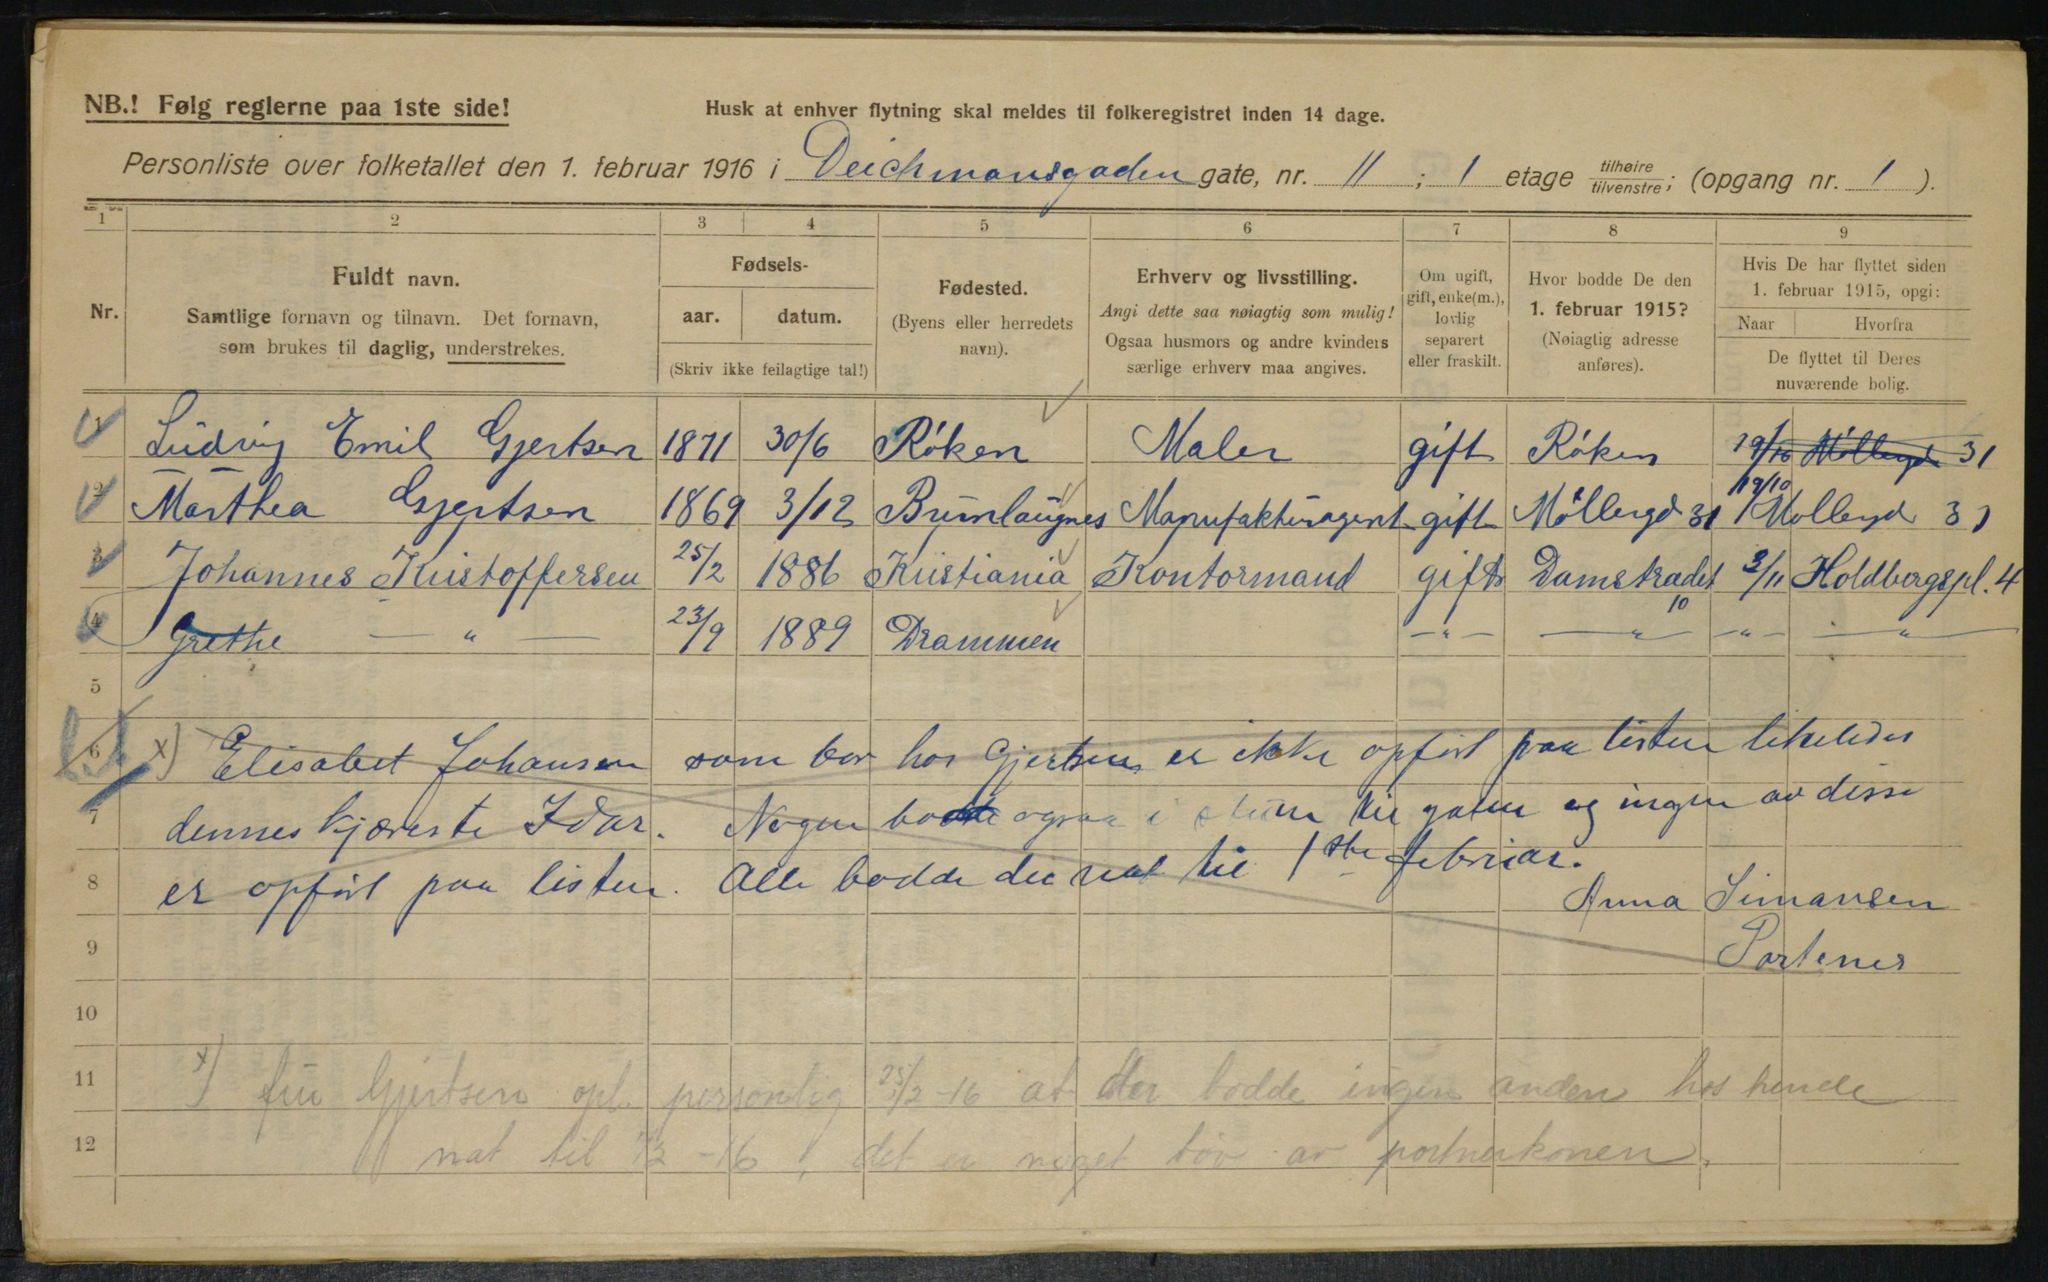 NB.! Følg reglerne paa 1ste side!
Husk at enhver flytning skal meldes til folkeregistret inden 14 dage.
Personliste over folketallet den 1. februar 1916 i Deichmansgaden gate, nr. 11 ; 1 etage tilhøire/tilvenstre; (opgang nr. 1 ).
1 2 3 4 5 6 7 8 9
Nr.
Fuldt navn.
Samtlige fornavn og tilnavn. Det fornavn,
som brukes til daglig, understrekes.
Fødsels-
aar. datum.
(Skriv ikke feilagtige tal!)
Fødested.
(Byens eller herredets
navn).
Erhverv og livsstilling.
Angi dette saa nøiagtig som mulig!
Ogsaa husmors og andre kvinders
særlige erhverv maa angives.
Om ugift,
gift, enke(m.),
lovlig
separert
eller fraskilt.
Hvor bodde De den
1. februar 1915?
(Nøiagtig adresse
anføres).
Hvis De har flyttet siden
1. februar 1915, opgi:
Naar Hvorfra
De flyttet til Deres
nuværende bolig.
1 Ludvig Emil Gjertsen 1871 30/6 Røken Maler gift Røken 19/10 Møllergd 31
2 Marthea Gjertsen 1869 3/12 Brunlaugnes Manufakturagent gift Møllergd 31 19/10 Møllergd 31
3 Johannes Kristoffersen 25/2 1886 Kristiania Kontormand gift Damstradet 10 3/11 Holdbergspl. 4
4 Grethe — " — 23/9 1889 Drammen — " — — " — — " — — " —
5
6 x) Elisabet Johansen som bor hos Gjertsen er ikke opført paa listen likeledes
7 dennes kjæreste Idar. Nogen bodde ogsaa i stuen til gaten og ingen av disse
8 er opført paa listen. Alle bodde der nat til 1ste februar.
Anna Simansen
9 Portener
10
11 x) fru Gjertsen opl. personlig 25/2-16 at der bodde ingen anden hos hende
12 nat til 1/2-16, det er noget tøv av portnerkonen.